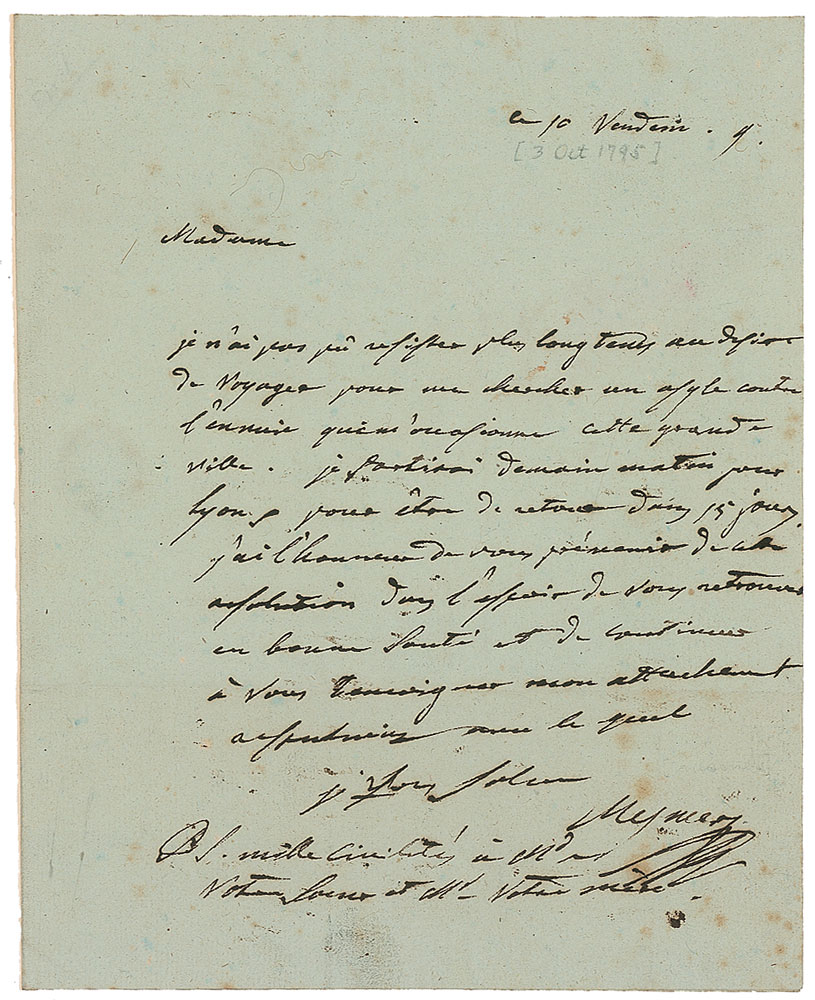 ce 10 Vendem. 9.
[3 Oct 1795]
Madame
je n'ai pas pû resister plus longtems au desire
de Voyager pour me chercher un asyle contre
l'ennuie que m'occasionne cette grande
ville. je partirai demain matin pour
Lyon, pour être de retour dans 15 jours,
j'ai l'honneur de vous prévenir de cette
resolution dans l'espoir de vous retrouver
en bonne Santé et de continuer
à vous temoigner mon attachement
respectueux avec le quel
je vous Salue
Mesmer
PS. mille civilités à Md
Votre Soeur et Mr Votre mère.